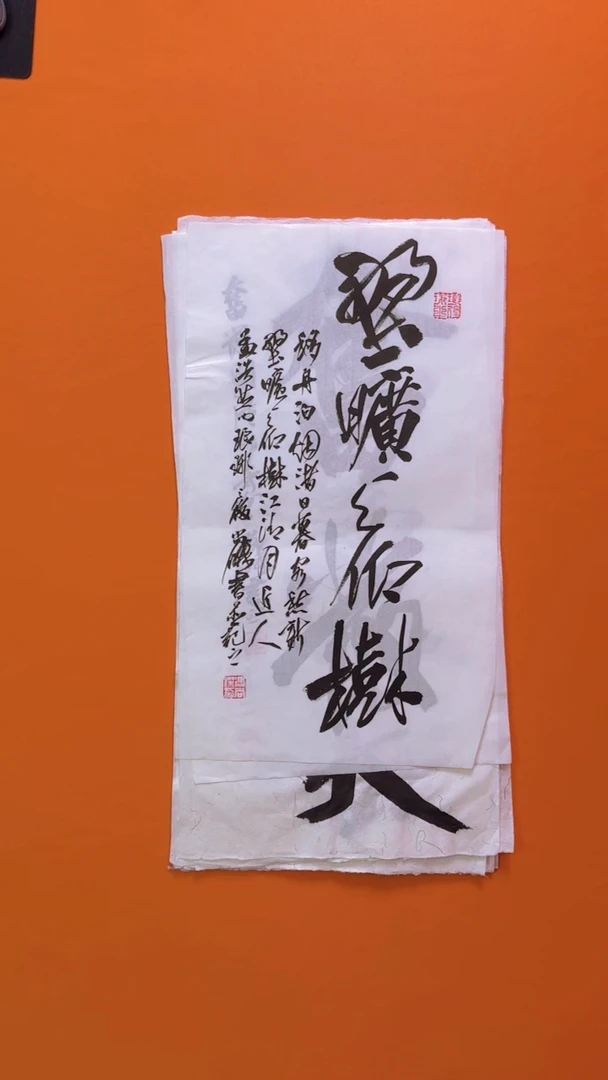 野曠天低樹
移舟泊烟渚日暮客愁新
野曠天低樹江清月近人
孟浩然